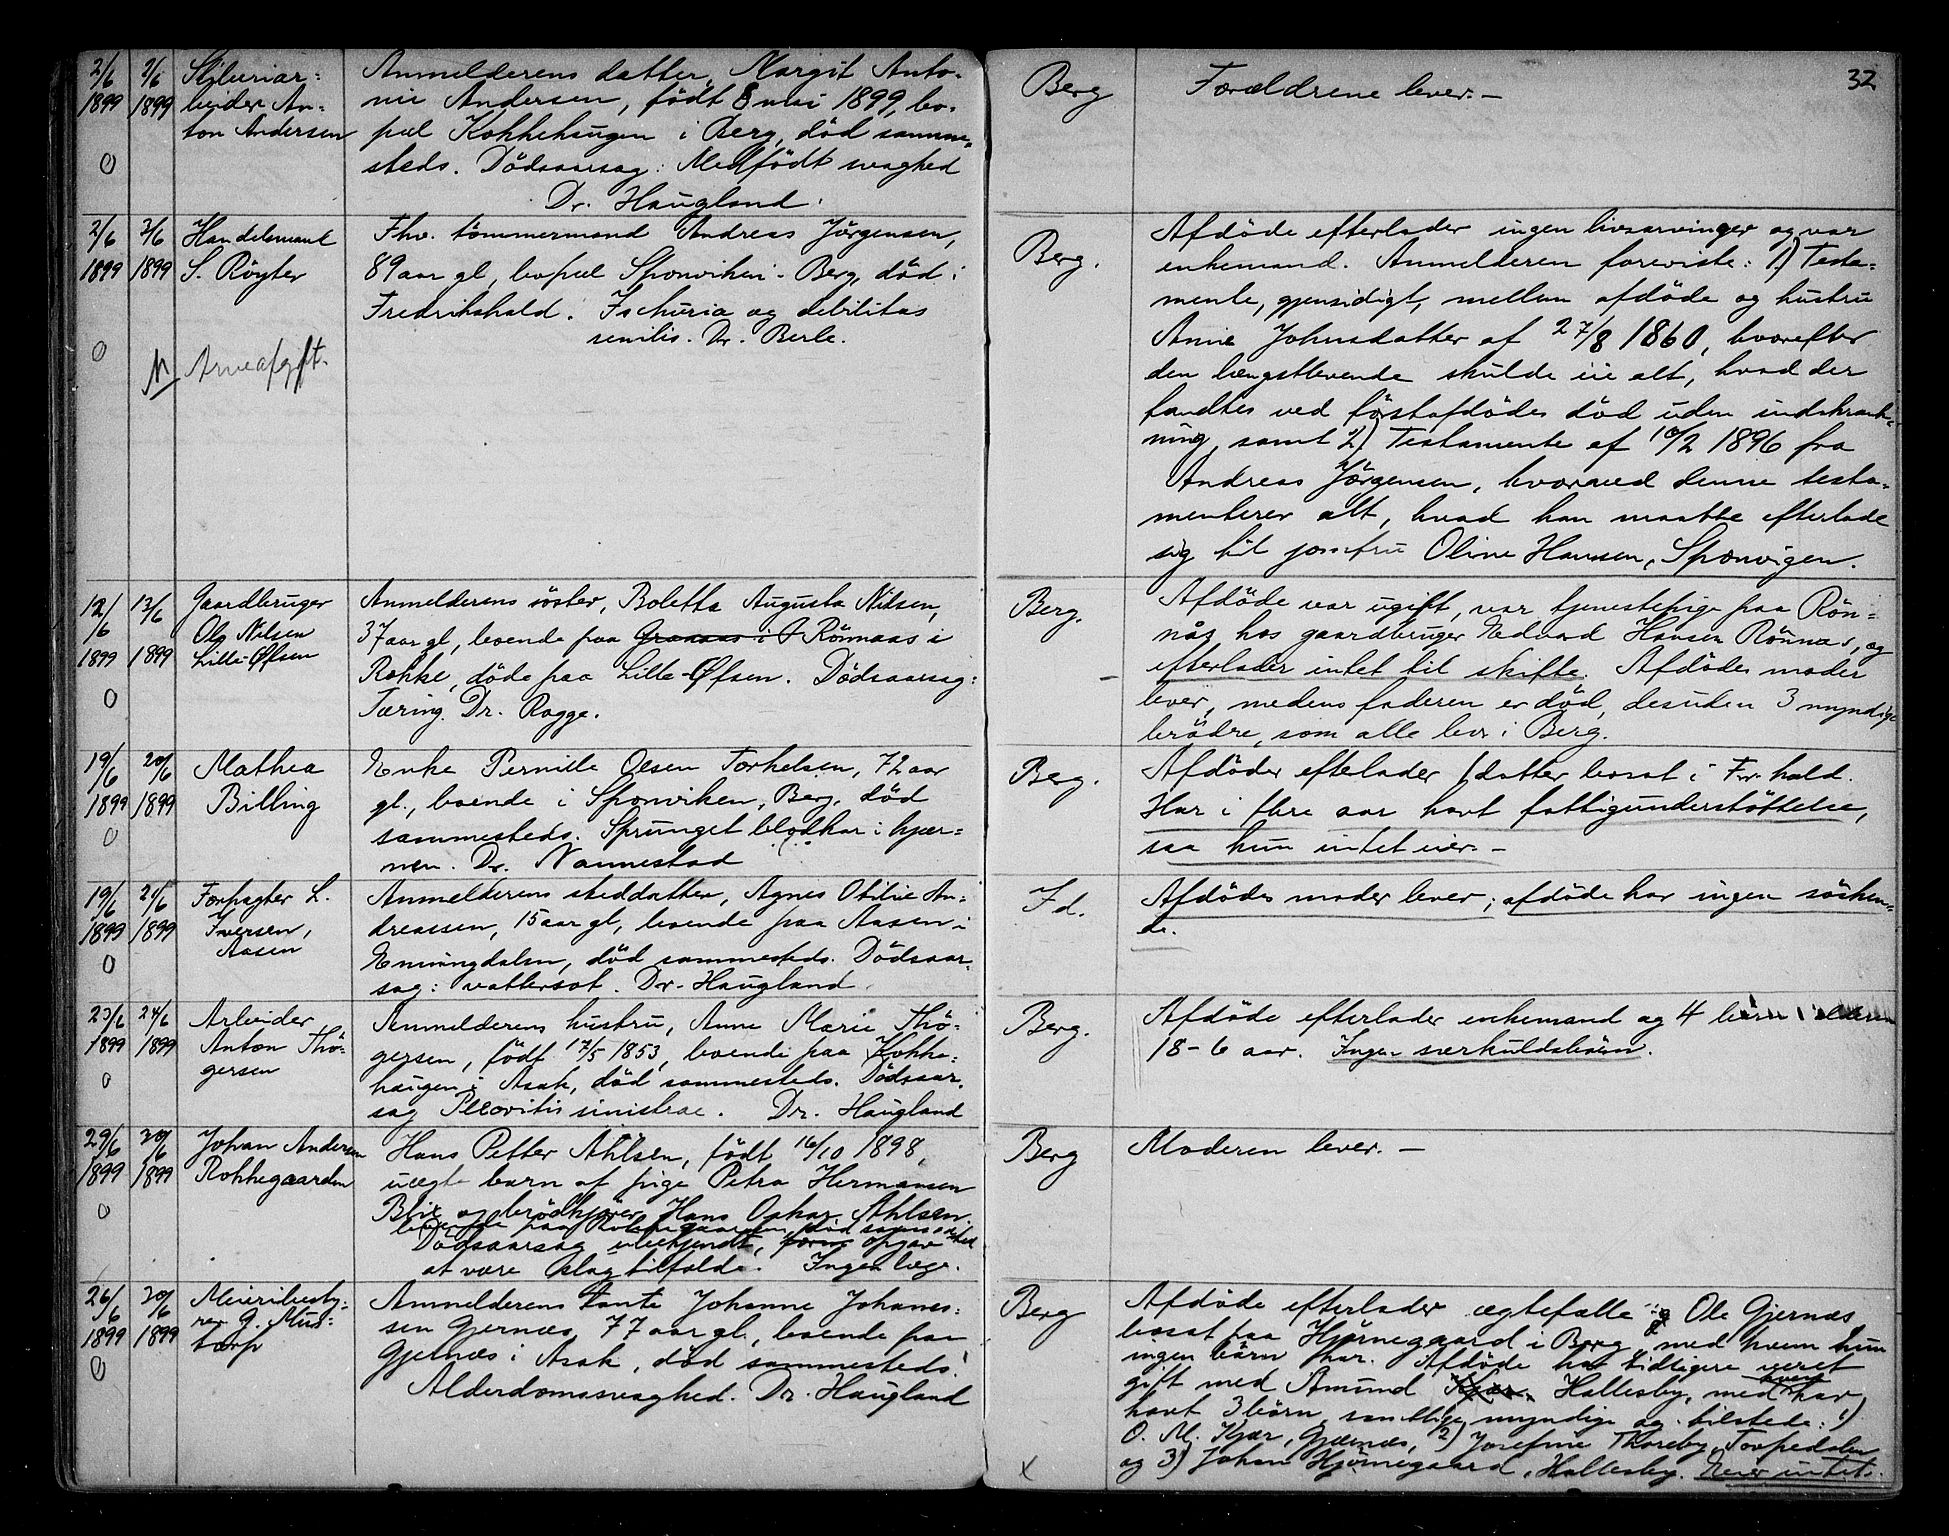 32
2/6 2/6 Sliberiar-
1899 1899 beider An-
ton Andersen
0
Anmelderens datter, Margit Anto-
nie Andersen, født 8 mai 1899, bo-
pæl Kokkehaugen i Berg, død samme-
steds. Dödsaarsag: Medfödt svaghed
Dr. Haugland.
Berg
Forældrene lever. –
2/6 3/6 Handelsmand
1899 1899 S. Röyter
0
N Arveafgift.
Fhv. tömmermand Andreas Jörgensen,
89 aar gl, bopæl Sponviken i Berg, död i
Fredrikshald. Ischuria og debilitas
senilis. Dr. Berle.
Berg.
Afdöde efterlader ingen livsarvinger og var
enkemand. Anmelderen foreviste: 1) Testa-
mente, gjensidigt, mellem afdöde og hustru
Anne Johnsdatter af 27/8 1860, hvorefter
den længstlevende skulde eie alt, hvad der
fandtes ved förstafdödes död uden indskrænk-
ning, samt 2) Testamente af 10/2 1896 fra
Andreas Jörgensen, hvorved denne testa-
menterer alt, hvad han maatte efterlade
sig til jomfru Oline Hansen, Sponvigen.
12/6 13/6 Gaardbruger
Ole Nilsen
1899 1899 Lille-Øfsen
0
Anmelderens söster, Boletta Augusta Nilsen,
37 aar gl, boende paa Rönnaas i
Rokke, döde paa Lille-Øfsen. Dödsaarsag:
Tæring. Dr. Rogge.
Berg.
Afdöde var ugift, var tjenestepige paa Rön-
nås hos gaardbruger Edvard Hansen Rönnas, og
efterlader intet til skifte. Afdödes moder
lever, medens faderen er död, desuden 3 myndige
brödre, som alle bor i Berg.
19/6 20/6 Mathea
1899 1899 Billing
0
Enke Pernille Olsen Torkelsen, 72 aar
gl., boende i Sponviken, Berg, död
sammesteds. Sprunget blodkar i hjær-
nen. Dr. Nannestad
Berg.
Afdöde efterlader 1 datter bosat i Fr.hald.
Har i flere aar havt fattigunderstöttelse,
saa hun intet eier. –
19/6 21/6 Forpagter L.
1899 1899 Iversen,
Aasen
0
Anmelderens steddatter, Agnes Otilie An-
dreassen, 15 aar gl, boende paa Aasen i
Enningdalen, död sammesteds. Dödsaar-
sag: vattersot. Dr. Haugland.
Id.
Afdödes moder lever; afdöde har ingen sösken-
de.
23/6 24/6 Arbeider
1899 1899 Anton Thö-
gersen
0
Anmelderens hustru, Anne Marie Thö-
gersen, födt 17/5 1853, boende paa Kokke-
haugen i Asak, död sammesteds. Dödsaar-
sag Pleuritis sinistrae. Dr. Haugland
Berg.
Afdöde efterlader enkemand og 4 börn i alderen
18-6 aar. Ingen særkuldsbörn.
29/6 30/6 Johan Andersen
1899 1899 Rokkegaarden
0
Hans Petter Ahlsen, födt 16/10 1898,
uægte barn af pige Petra Hermansen
Blix og brödkjörer Hans Oskar Ahlsen.
boende paa Rokkegaarden, död sammesteds
Dödsaarsag ubekjendt, opgav
at være slagtilfælde. Ingen læge.
Berg
Moderen lever. –
26/6 30/6 Meieribesty-
rer G. Mus-
1899 1899 torp
0
Anmelderens tante Johanne Johannes-
sen Gjernæs, 77 aar gl., boende paa
Gjernæs i Asak, död sammesteds.
Alderdomssvaghed. Dr. Haugland
Berg
x
Afdöde efterlader ægtefælle Ole Gjernæs
bosat paa Hjörnegaard i Berg, med hvem hun
ingen börn har. Afdöde har tidligere været
gift med Amund Hallesby, med hvem har
havt 3 börn, samtlige myndige og tilstede: 1)
O. M. Kjær, Gjernæs, 2) Josefine Thoreby, Torpedalen
og 3) Johan Hjörnegaard, Hallesby. Eier intet.